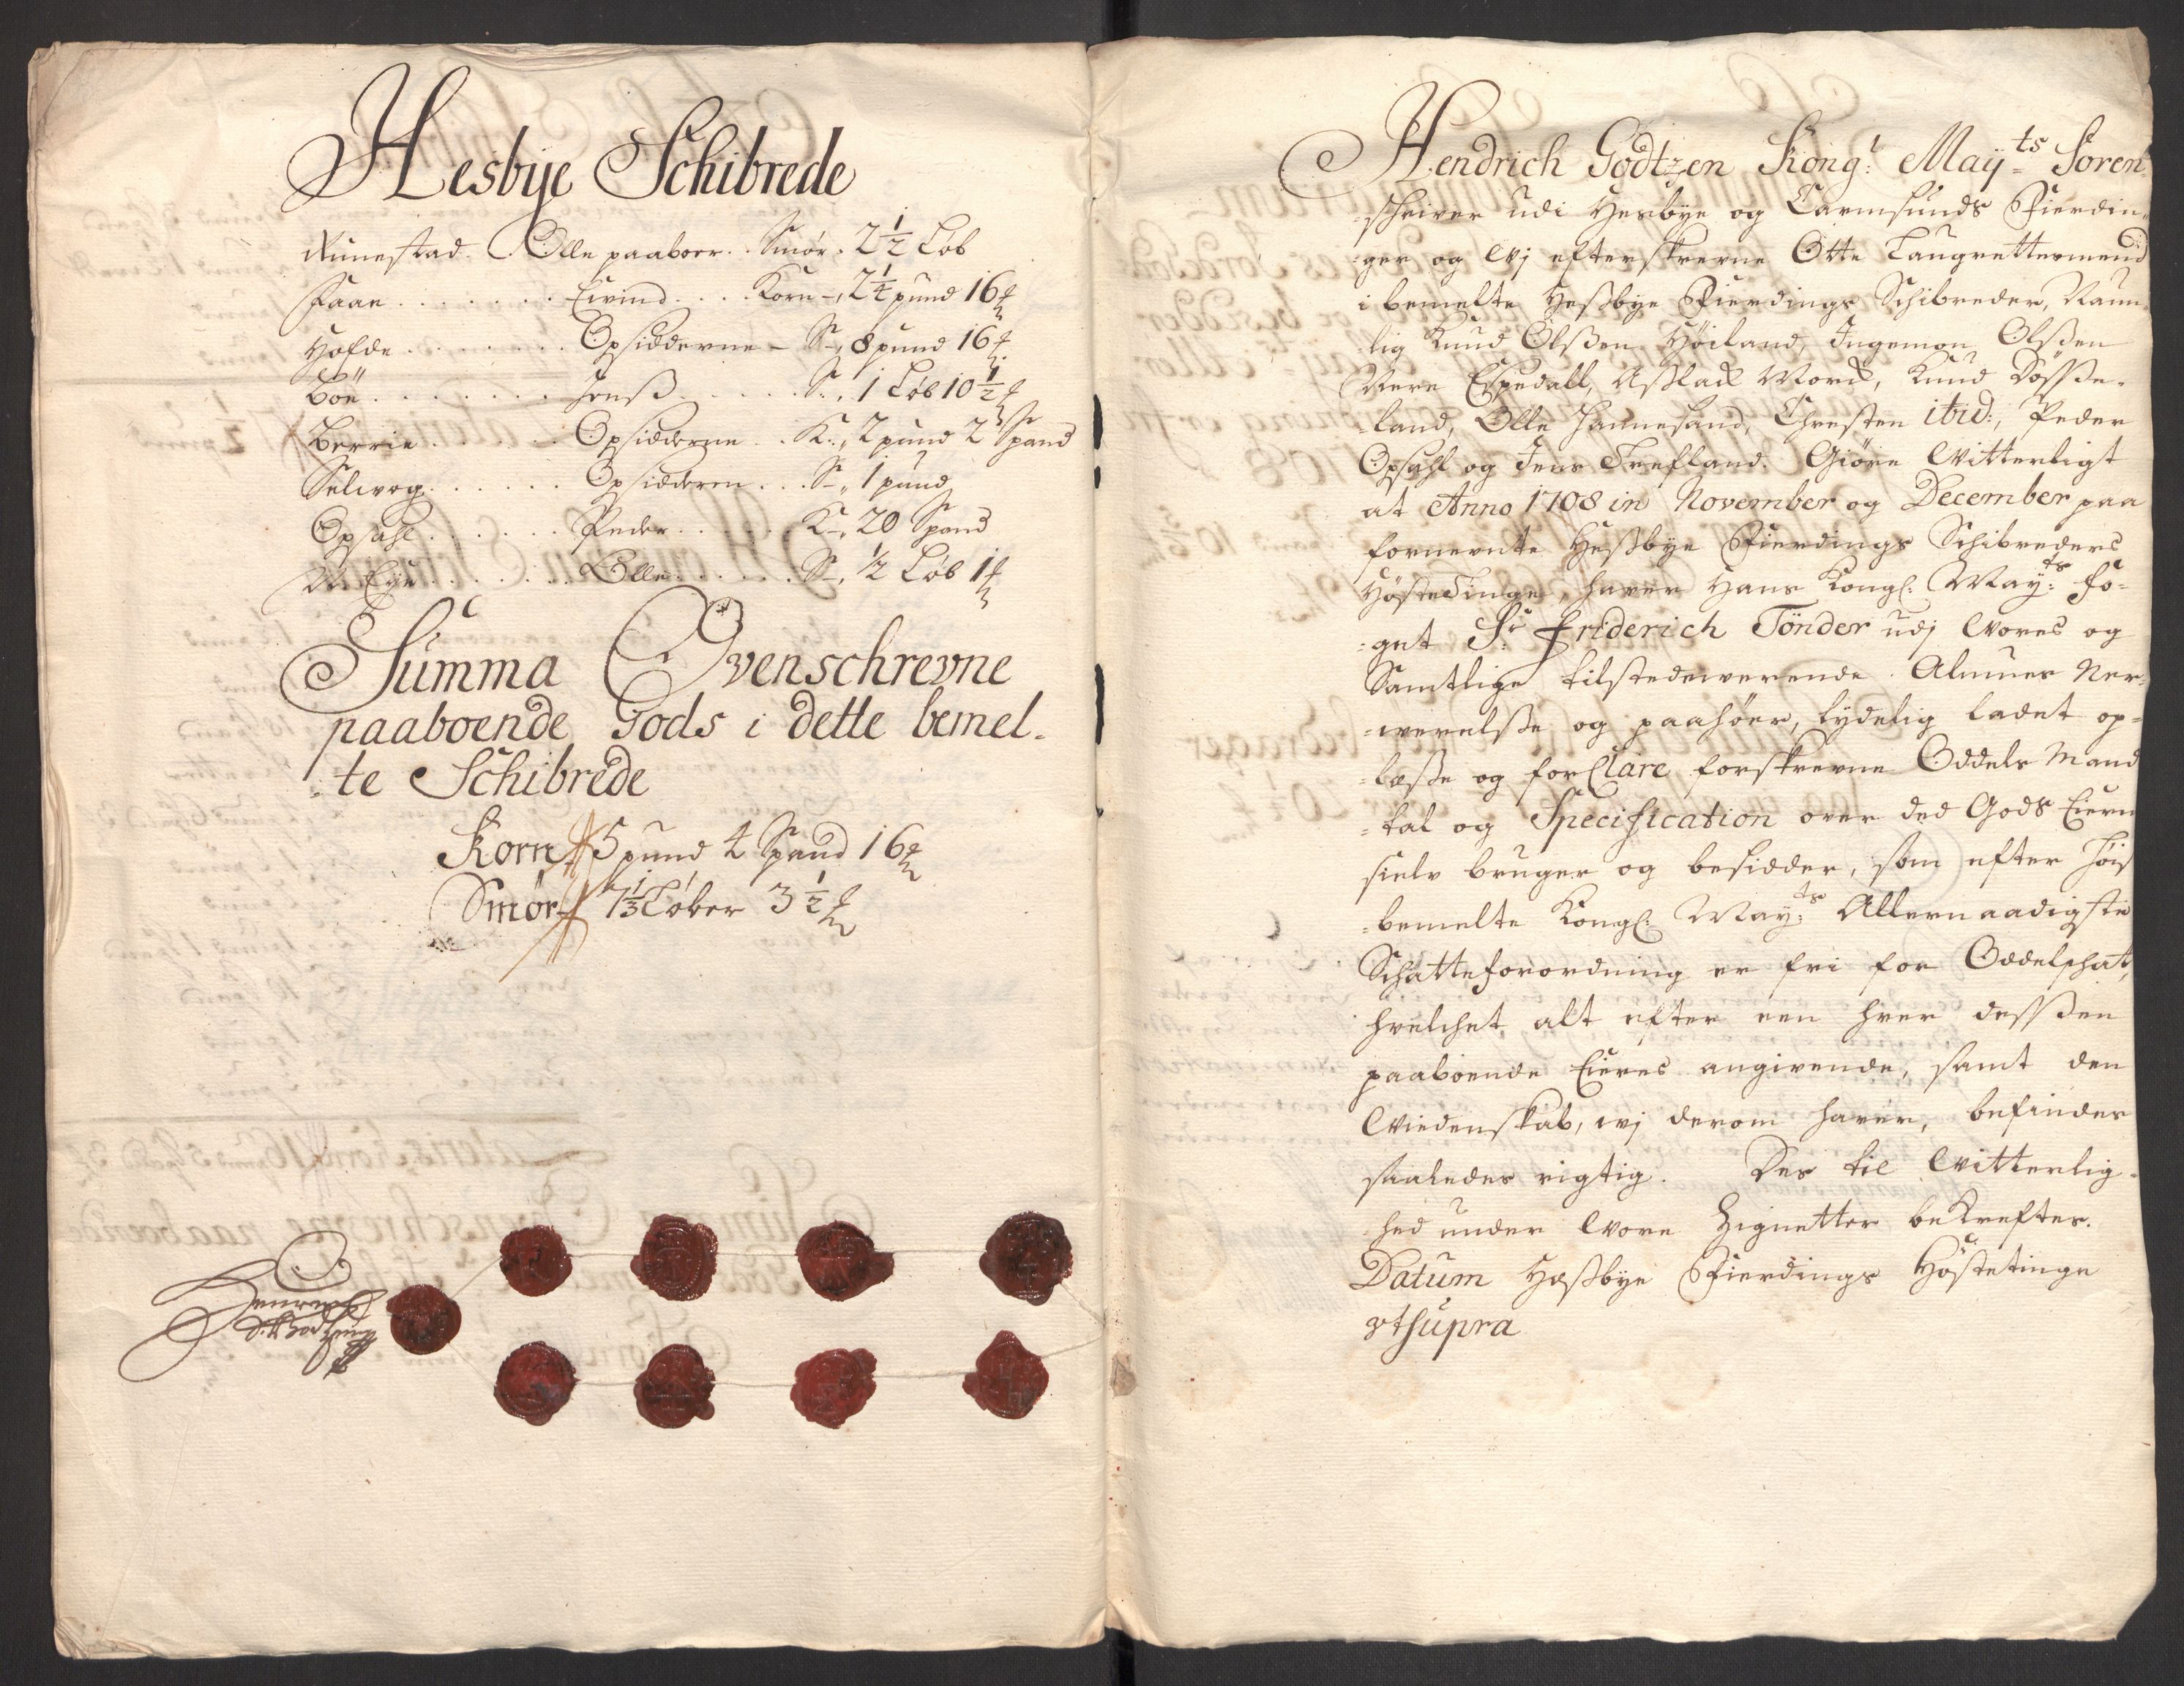 Hesbÿe Schibrede
Runestad. Olle paaboer. Smør. 2 1/2 Løb
Faae . . . . . . . Eivind . . . . Korn -, 2 1/4 pund 16 ℔
Hofde . . . . . . . Opsidderne - S-, 8 pund 16 ℔
Böe . . . . . . . Jenß . . . . . S-, 1 Løb 10 1/2 ℔
Berrie . . . . . . Opsidderne . . K-, 2 pund 2 Spand
Selvog . . . . . . Opsidderen . . . S-, 1 pund
Opsahl . . . . . . Peder . . . . . K-, 20 Spand
W. Eye . . . . . . . Olle . . . . . S-, 1/2 Løb 1 ℔
Summa Ovenschrevne
paaboende Gods i dette bemel-
-te Schibrede
Korn 5 pund 4 Spand 16 ℔
Smør 7 1/3 Løber 3 1/2 ℔
Hendrich Godtzen Kongl: Maÿ-ts Soren-
schriver udi Hesbye og Carmsunds Fierdin-
ger og Wj efterskrevne Otte Laugrettesmend
i bemelte Heßbye Fierdings Schibreder, Naun-
lig Knud Olßen Høiland, Ingemon Olßen
Nere Espedall, Aßlack Worck, Knud Døsse-
land, Olle Hannesand, Chresten ibid:, Peder
Opsahl og Jens Trefland. Giøre Witterligt
at Anno 1708 in November og December paa
fornevnte Heßbye Fierdings Schibreders
Høste Tinge, haver Hans Kongl: Maÿ:ts fo-
-get Sr: Friderich Tönder udj Wores og
Samtlige tilstedeværende Almues Ner-
-werelße og paahøer, lydelig ladet op-
-læße og for Clare forskrevne Oddels Mand
-tal og Specification over ded Gods Eiern
sielv bruger og besidder, som efter Høist
-bemelte Kongl: Maÿ:ts Allernaadigste
Schatteforordning er fri for Oddelschat,
hvelchet alt efter een hver desßen
paaboende Eieres angivende, samt den
Wiedenskab, wj derom haver, befindes
saaledes rigtig. Des til Witterlig-
hed under Wore Zignetter bekreftes.
Datum Heßbye Fierdings Høstetinge
ut supra